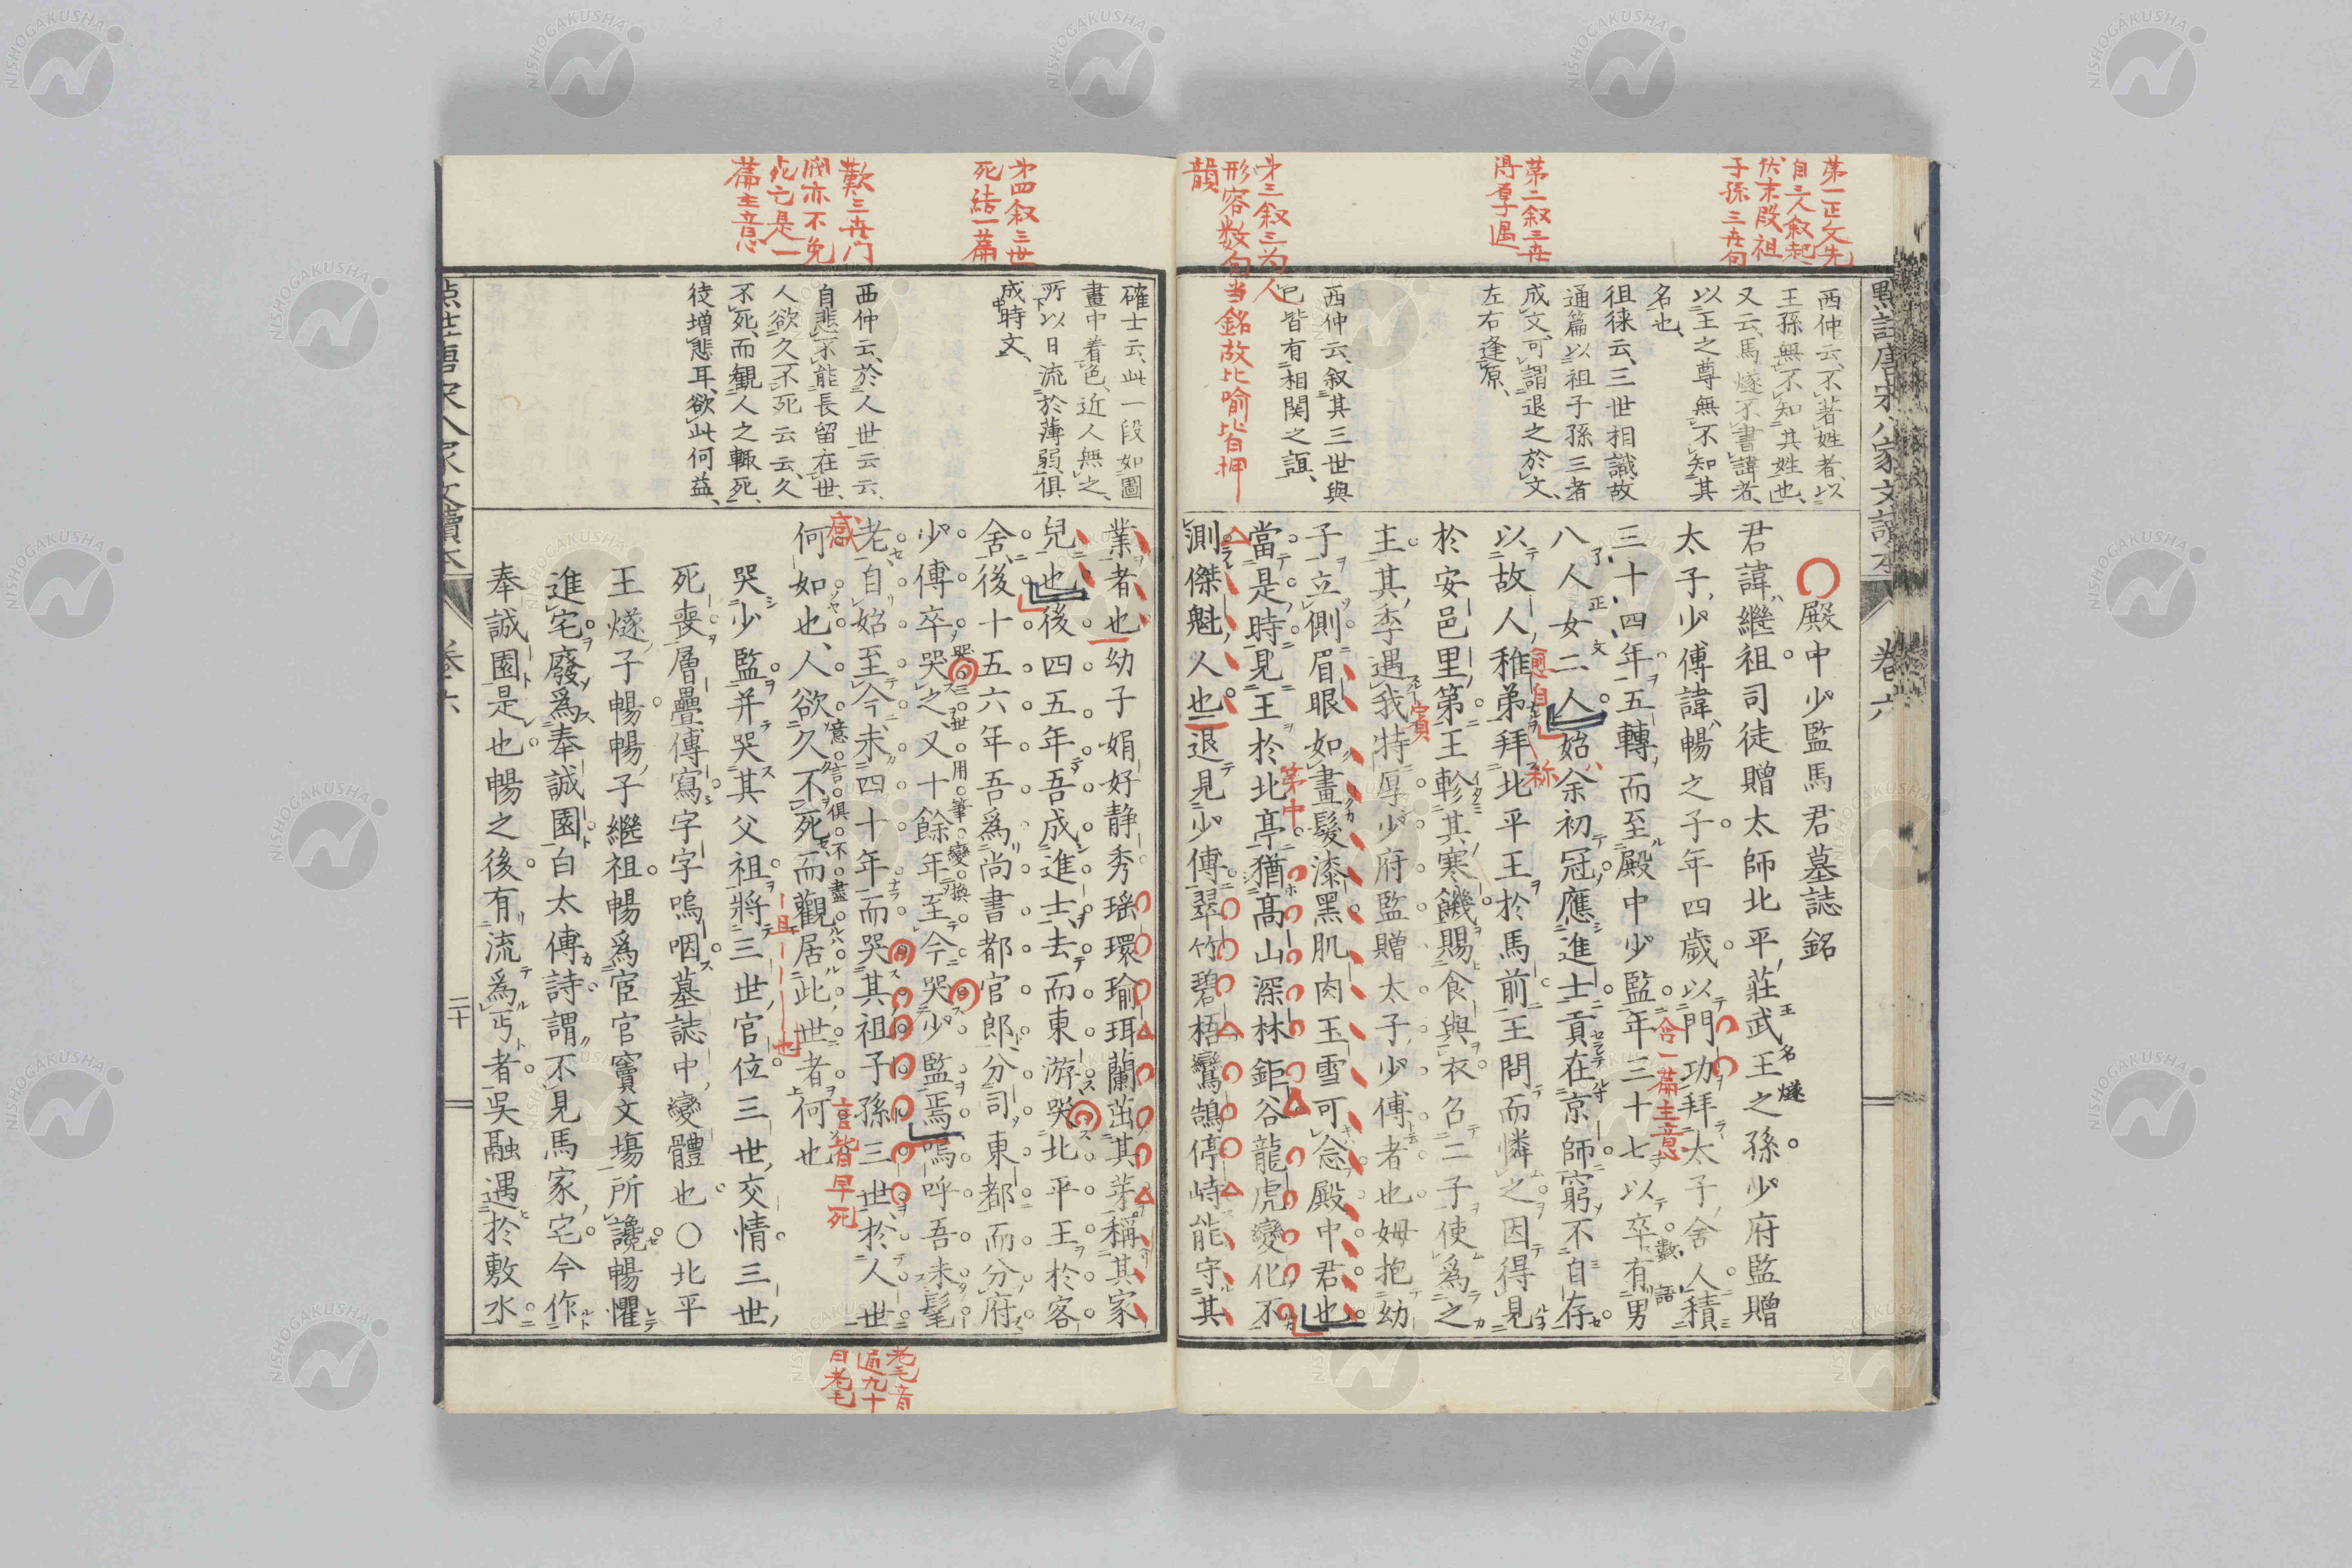 點註唐宋八家文讀本
卷六
第一正文先
自三人叙起
伏末段祖
子孫三世句
第二叙三世
得厚遇
第三叙三为人
形容数句当銘故比喻皆押
韻
西仲云、不著姓者、以
王孫無不知其姓也、
又云、馬燧不書諱者、
以王之尊無不知其
名也、
徂徠云、三世相識故
通篇以祖子孫三者
成文、可謂退之於文、
左右逢原、
西仲云、叙其三世與
已皆有相関之誼、
殿中少監馬君墓誌銘
君諱繼祖司徒贈太師北平莊武王之孫少府監贈
太子少傅諱暢之子年四歲以門功拜太子舍人積
三十四年五轉而至殿中少監年三十七以卒有男
八人女二人始余初冠應進士貢在京師窮不自存
以故人稚弟拜北平王於馬前王問而憐之因得見
於安邑里第王軫其寒饑賜食與衣召二子使爲之
主其季遇我特厚少府監贈太子少傅者也姆抱幼
子立側眉眼如畫髮漆黑肌肉玉雪可念殿中君也
當是時見王於北亭猶高山深林鉅谷龍虎變化不
測傑魁人也退見少傅翠竹碧梧鸞鵠停峙能守其
王名燧
数語
合一篇主意
愈自称
賓
第中
第四叙三世
死結一篇
歎三世门
閥亦不免
死亡是一
篇主意
確士云、此一段如圖
畫中着色、近人無之、
所以日流於薄弱、俱
成時文、
西仲云、於人世云云、
自悲不能長留在世、
人欲久不死云云、久
不死、而観人之輙死、
徒増悲耳、欲此何益、
業者也幼子娟好静秀瑤環瑜珥蘭茁其芽稱其家
兒也後四五年吾成進士去而東游哭北平王於客
舍後十五六年吾爲尚書都官郎分司東都而分府
少傅卒哭之又十餘年至今哭少監焉嗚呼吾未耄
老自始至今未四十年而哭其祖子孫三世於人世
何如也、人欲久不死而觀居此世者何也
哭少監并哭其父祖將三世官位三世交情三世
死喪層疊傳寫字字嗚咽墓誌中變體也〇北平
王燧子暢暢子繼祖暢爲宦官竇文場所讒暢懼
進宅廢爲奉誠園白太傅詩謂不見馬家宅今作
奉誠園是也暢之後有流爲丐者吳融遇於敷水
哭三世用筆變換
意言俱不盡
感
言皆早死
耄音
二十